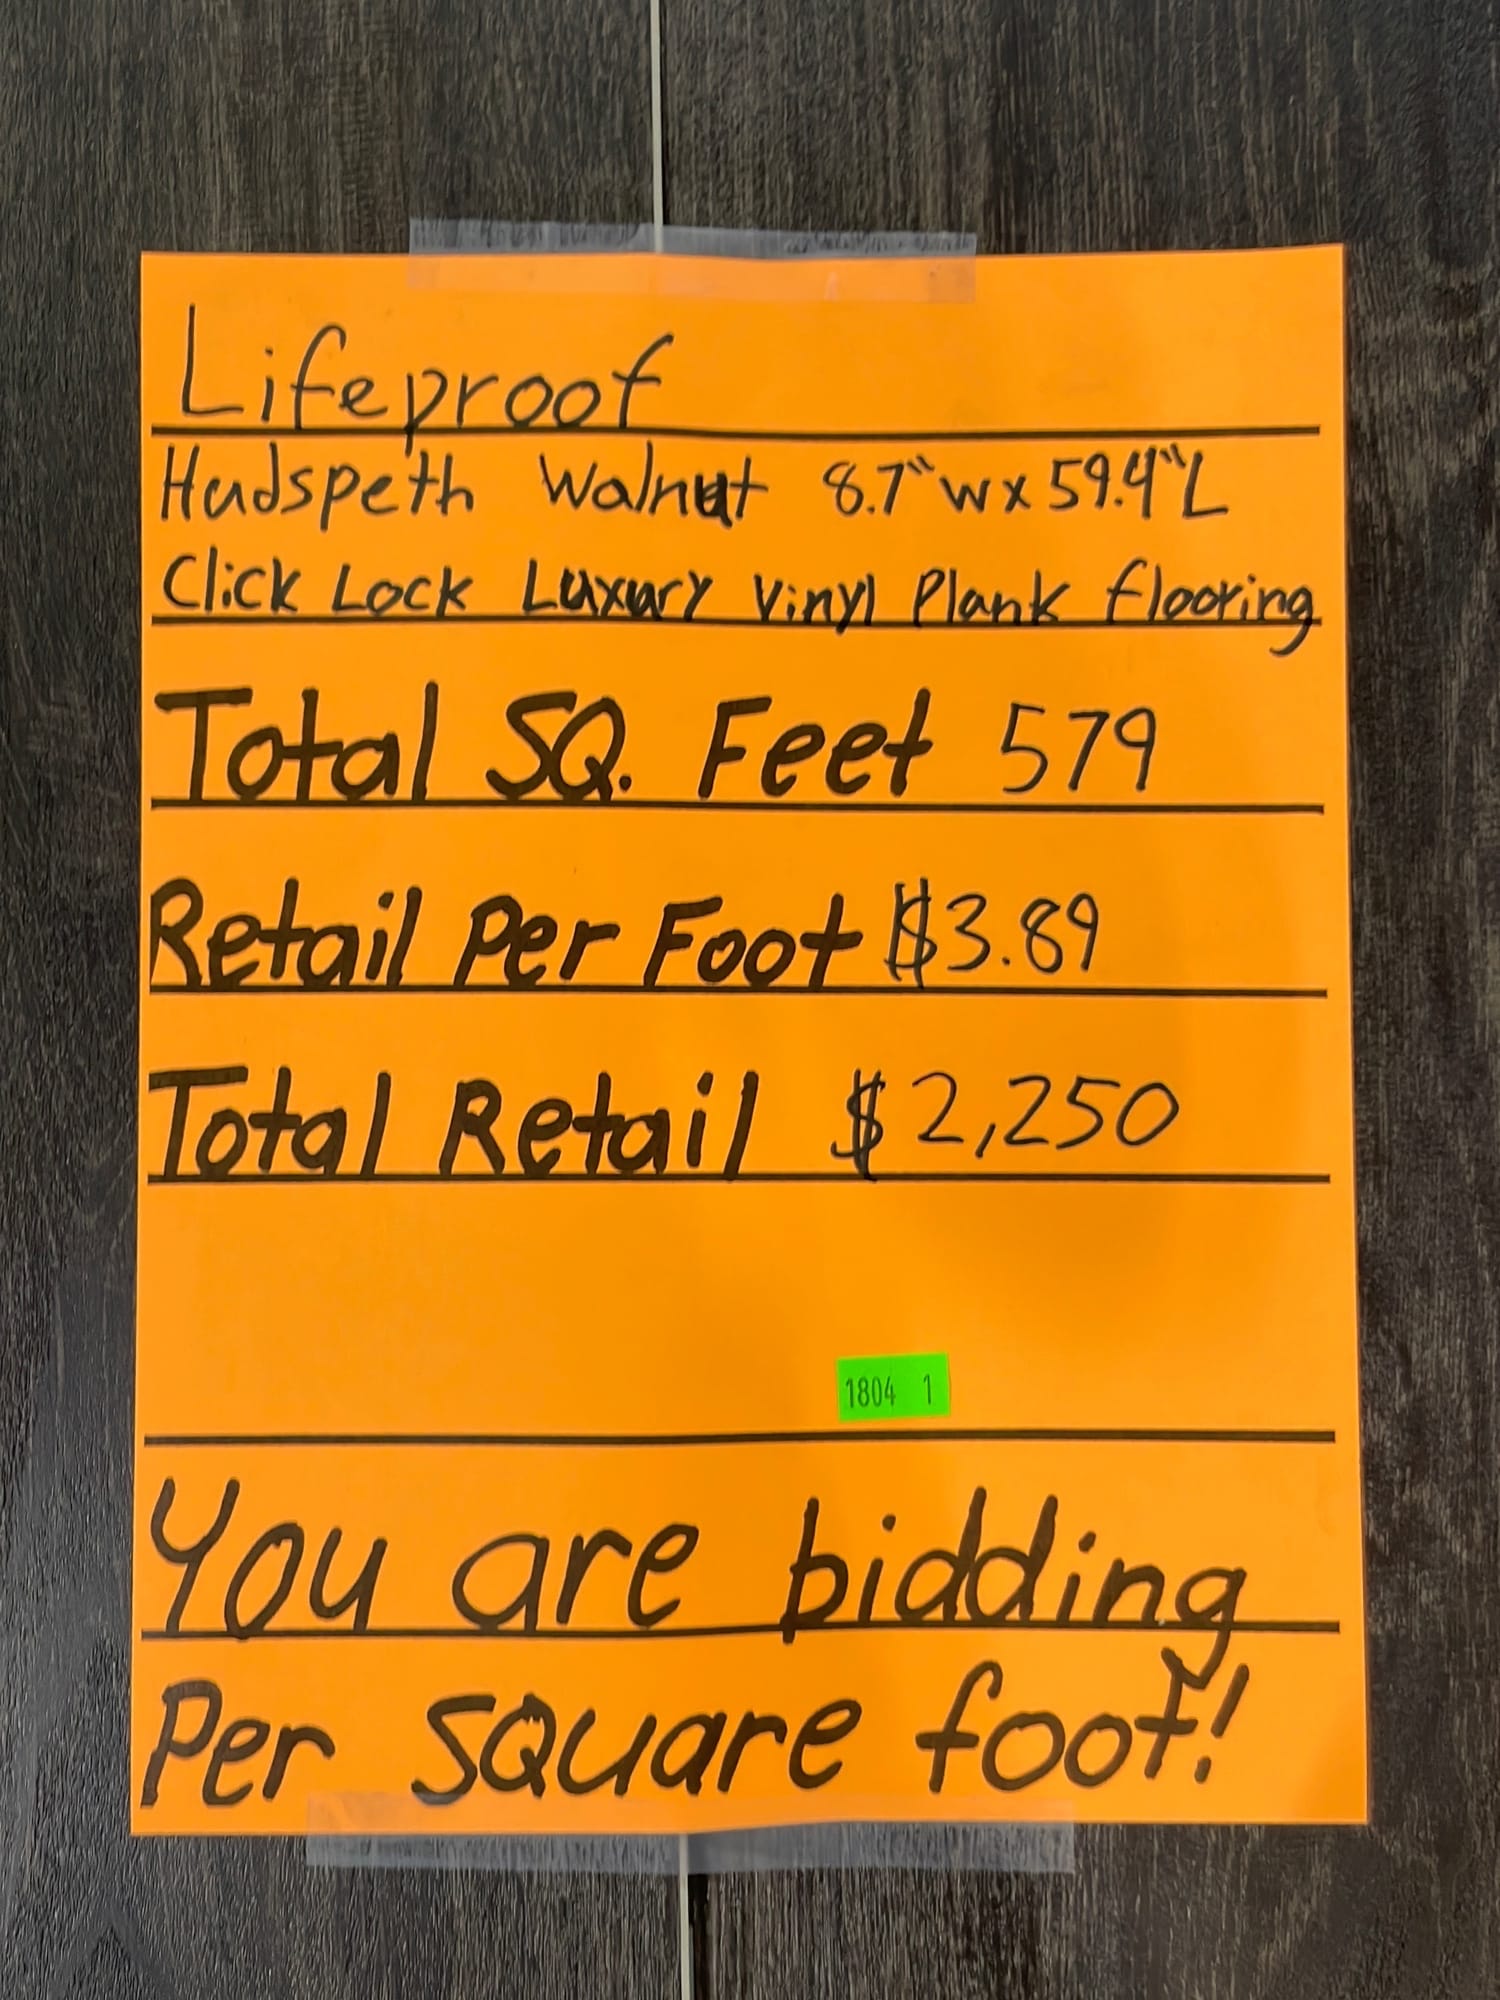 Lifeproof
Hudspeth Walnut 8.7"W x 59.4"L
Click Lock Luxury Vinyl Plank flooring
Total SQ. Feet 579
Retail Per Foot $3.89
Total Retail $2,250
1804 1
You are bidding
Per square foot!